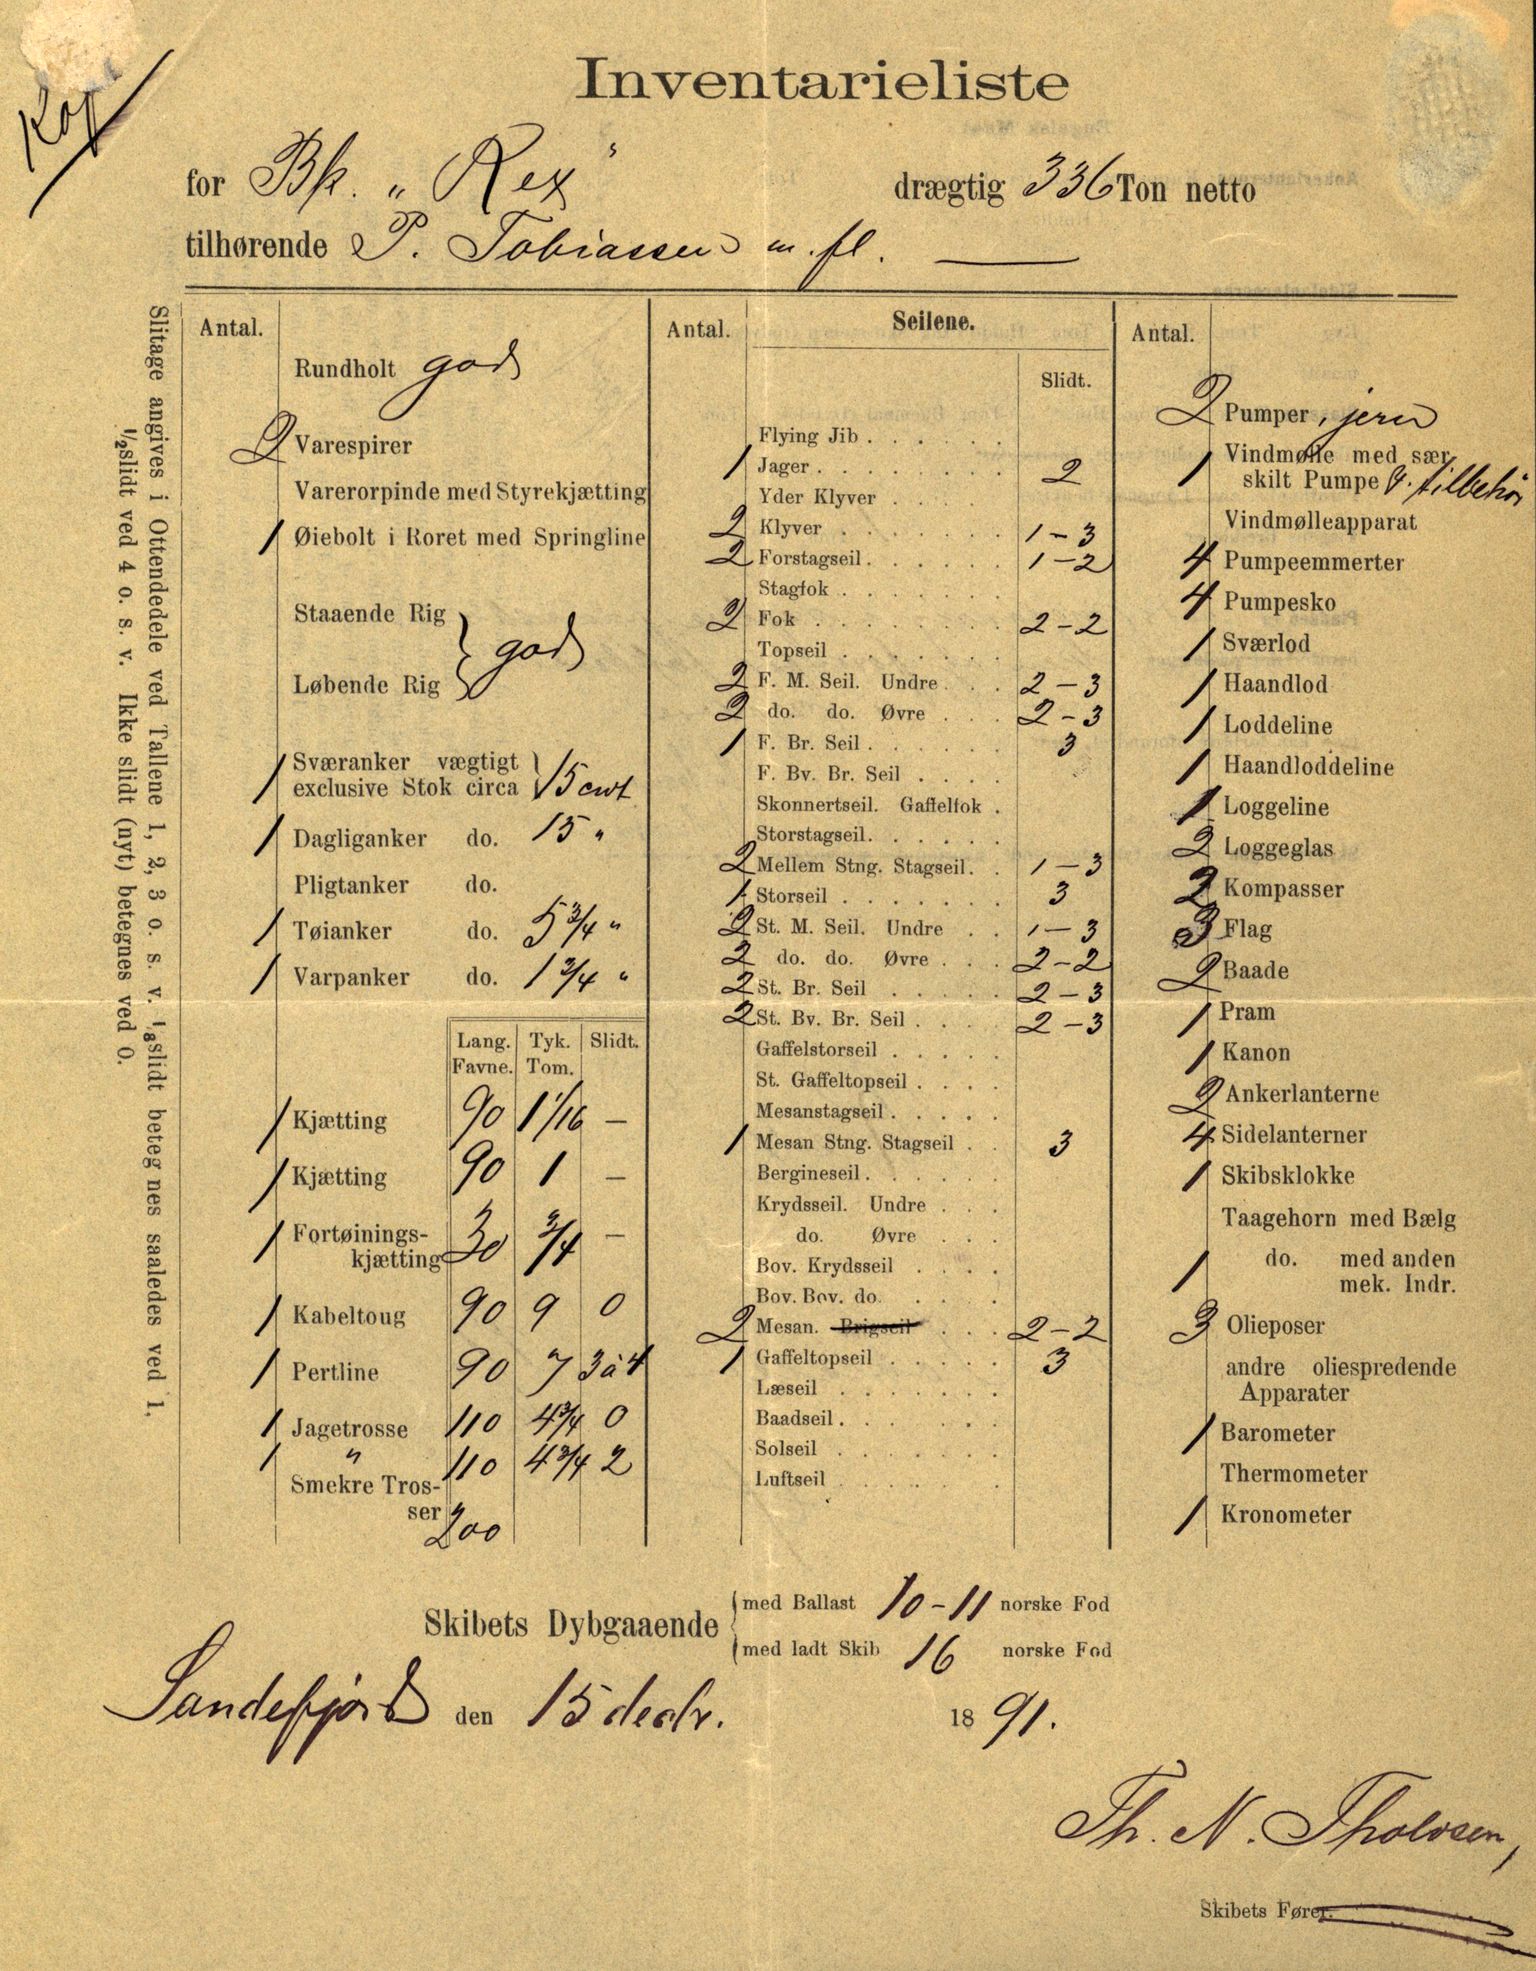 Kop
Inventarieliste
for Bk. „Rex” drægtig 336 Ton netto
tilhørende P. Tobiassen m. fl.
Slitage angives i Ottendedele ved Tallene 1, 2, 3 o. s. v. 1/8 slidt beteg nes saaledes ved 1,
1/2 slidt ved 4 o. s. v. Ikke slidt (nyt) betegnes ved 0.
Antal.
Rundholt god
2 Varespirer
Varerorpinde med Styrekjætting
1 Øiebolt i Roret med Springline
Staaende Rig
god
Løbende Rig
1 Sværanker vægtigt
exclusive Stok circa 15 cwt
1 Dagliganker do. 15 "
Pligtanker do.
1 Tøianker do. 5 3/4 "
1 Varpanker do. 1 3/4 "
Lang. Tyk. Slidt.
Favne. Tom.
1 Kjætting 90 1 1/16 —
1 Kjætting 90 1 —
1 Fortøinings-
kjætting 30 3/4 —
1 Kabeltoug 90 9 0
1 Pertline 90 7 3 à 4
1 Jagetrosse 110 4 3/4 0
1 " 110 4 3/4 2
Smekre Tros-
ser 200
Antal. Seilene.
Slidt.
Flying Jib . . . . .
1 Jager . . . . . . . 2
Yder Klyver . . . .
2 Klyver . . . . . . 1-3
2 Forstagseil . . . . . 1-2
Stagfok . . . . . .
2 Fok . . . . . . . 2-2
Topseil . . . . . .
2 F. M. Seil. Undre . . . 2-3
2 do. do. Øvre . . . 2-3
1 F. Br. Seil . . . . . 3
F. Bv. Br. Seil . . . .
Skonnertseil. Gaffelfok .
Storstagseil . . . . .
2 Mellem Stng. Stagseil . . 1-3
1 Storseil . . . . . . 3
2 St. M. Seil. Undre . . 1-3
2 do. do. Øvre . . . 2-2
2 St. Br. Seil . . . . . 2-3
2 St. Bv. Br. Seil . . . . 2-3
Gaffelstorseil . . . . .
St. Gaffeltopseil . . . .
Mesanstagseil . . . . .
1 Mesan Stng. Stagseil . . 3
Bergineseil . . . . . .
Krydsseil. Undre . . .
do. Øvre . . .
Bov. Krydsseil . . . .
Bov. Bov. do. . . .
2 Mesan. Brigseil . . . 2-2
1 Gaffeltopseil . . . . . 3
Læseil . . . . . .
Baadseil . . . . . .
Solseil . . . . . .
Luftseil . . . . . .
Antal.
2 Pumper, jern
1 Vindmølle med sær
skilt Pumpe & tilbehør
Vindmølleapparat
4 Pumpeemmerter
4 Pumpesko
1 Sværlod
1 Haandlod
1 Loddeline
1 Haandloddeline
1 Loggeline
2 Loggeglas
2 Kompasser
3 Flag
2 Baade
1 Pram
1 Kanon
2 Ankerlanterne
4 Sidelanterner
1 Skibsklokke
Taagehorn med Bælg
1 do. med anden
mek. Indr.
3 Olieposer
andre oliespredende
Apparater
1 Barometer
Thermometer
1 Kronometer
Skibets Dybgaaende
med Ballast 10-11 norske Fod
med ladt Skib 16 norske Fod
Sandefjord den 15 decbr. 1891.
Th. N. Tholvsen,
Skibets Fører.